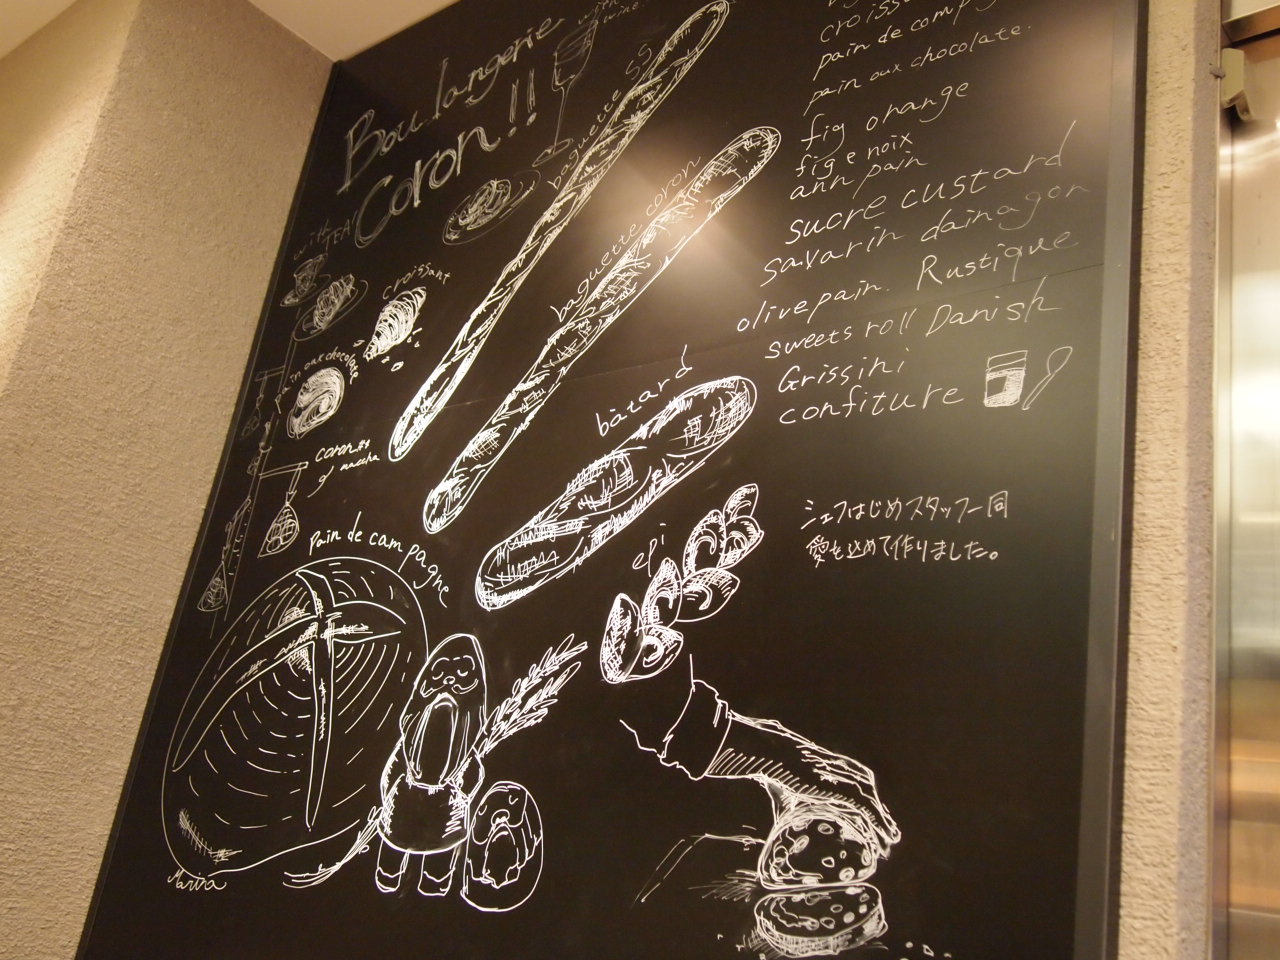 Boulangerie
Coron!!
with wine.
with
TEA
baguette SS
baguette coron
croissant
pain aux chocolate
coron
maccha
bàtard
epi
Pain de campagne
Mariva
pain de comp
pain aux chocolate.
fig orange
fig e noix
ann pain
sucre custard
savarin dainagon
olive pain. Rustique
sweets roll Danish
Grissini
confiture
シェフはじめスタッフ一同
愛を込めて作りました。